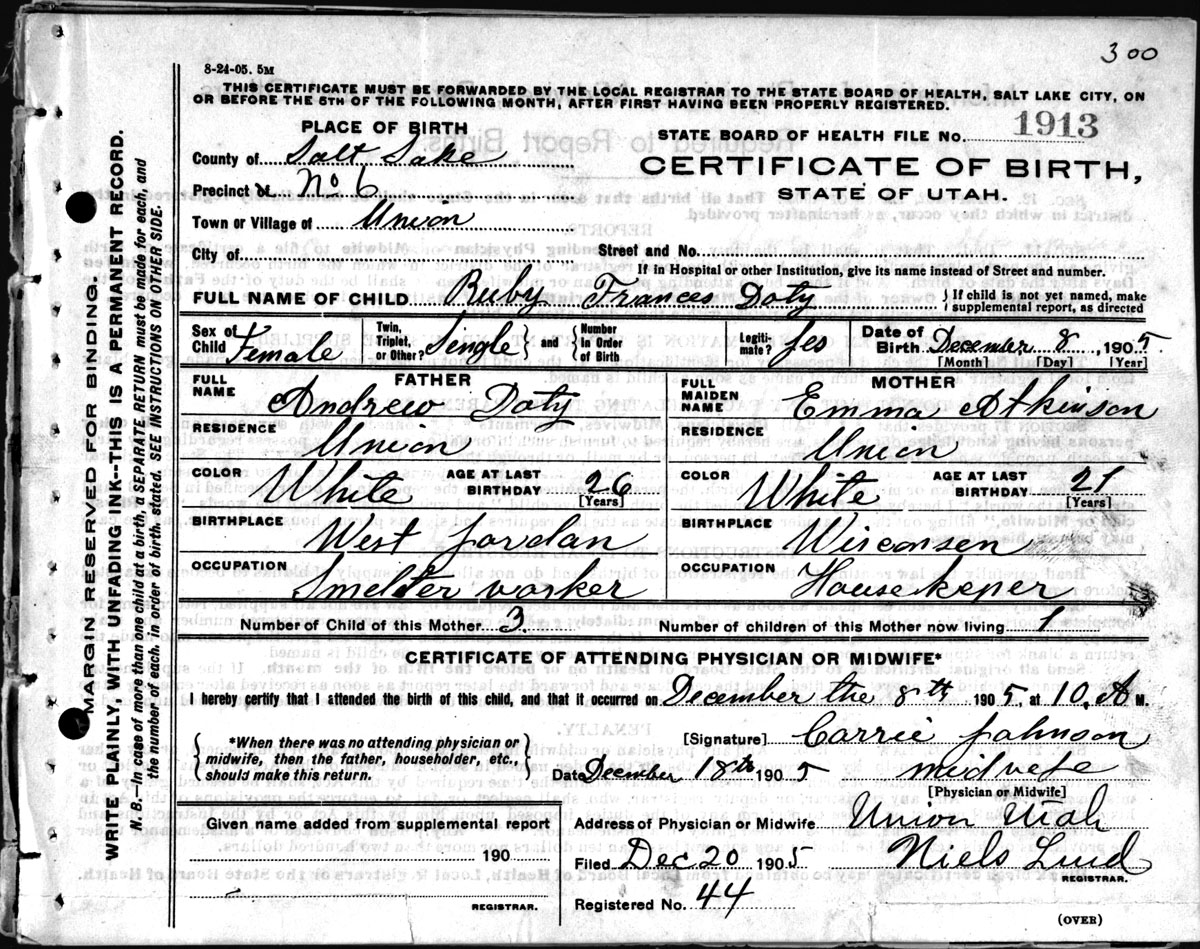 300
8-24-05. 5M
THIS CERTIFICATE MUST BE FORWARDED BY THE LOCAL REGISTRAR TO THE STATE BOARD OF HEALTH, SALT LAKE CITY, ON
OR BEFORE THE 5TH OF THE FOLLOWING MONTH, AFTER FIRST HAVING BEEN PROPERLY REGISTERED.
PLACE OF BIRTH
STATE BOARD OF HEALTH FILE No. 1913
County of Salt Lake
CERTIFICATE OF BIRTH,
Precinct of No 6
STATE OF UTAH.
Town or Village of Union
City of Street and No.
If in Hospital or other Institution, give its name instead of Street and number.
FULL NAME OF CHILD Ruby Frances Doty } If child is not yet named, make supplemental report, as directed
Sex of Child Female Twin, Triplet, or Other? Single } and { Number in Order of Birth Legiti-mate? yes Date of Birth December 8, 1905
[Month] [Day] [Year]
FULL NAME FATHER Andrew Doty
FULL MAIDEN NAME MOTHER Emma Atkinson
RESIDENCE Union
RESIDENCE Union
COLOR White AGE AT LAST BIRTHDAY 26 [Years]
COLOR White AGE AT LAST BIRTHDAY 21 [Years]
BIRTHPLACE West Jordan
BIRTHPLACE Wisconsen
OCCUPATION Smelter worker
OCCUPATION Housekeper
Number of Child of this Mother 3. Number of children of this Mother now living 1
CERTIFICATE OF ATTENDING PHYSICIAN OR MIDWIFE*
I hereby certify that I attended the birth of this child, and that it occurred on December the 8th 1905, at 10. A M.
{ *When there was no attending physician or midwife, then the father, householder, etc., should make this return. }
[Signature] Carrie Johnson
Date December 18th 1905 midvefe
[Physician or Midwife]
Given name added from supplemental report
190
REGISTRAR.
Address of Physician or Midwife Union Utah
Filed Dec 20 1905 Niels Lind
REGISTRAR.
Registered No. 44
(OVER)
MARGIN RESERVED FOR BINDING.
WRITE PLAINLY, WITH UNFADING INK--THIS IS A PERMANENT RECORD.
N. B.—In case of more than one child at a birth, a SEPARATE RETURN must be made for each, and
the number of each, in order of birth, stated. SEE INSTRUCTIONS ON OTHER SIDE.